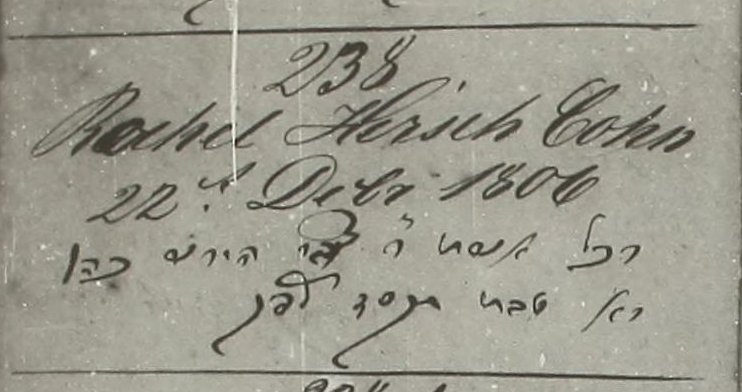 238
Rachel Hirsch Cohn
22.t Decbr 1806
רחל אשת ר' צבי הירש כהן
טבת תקסז לפק